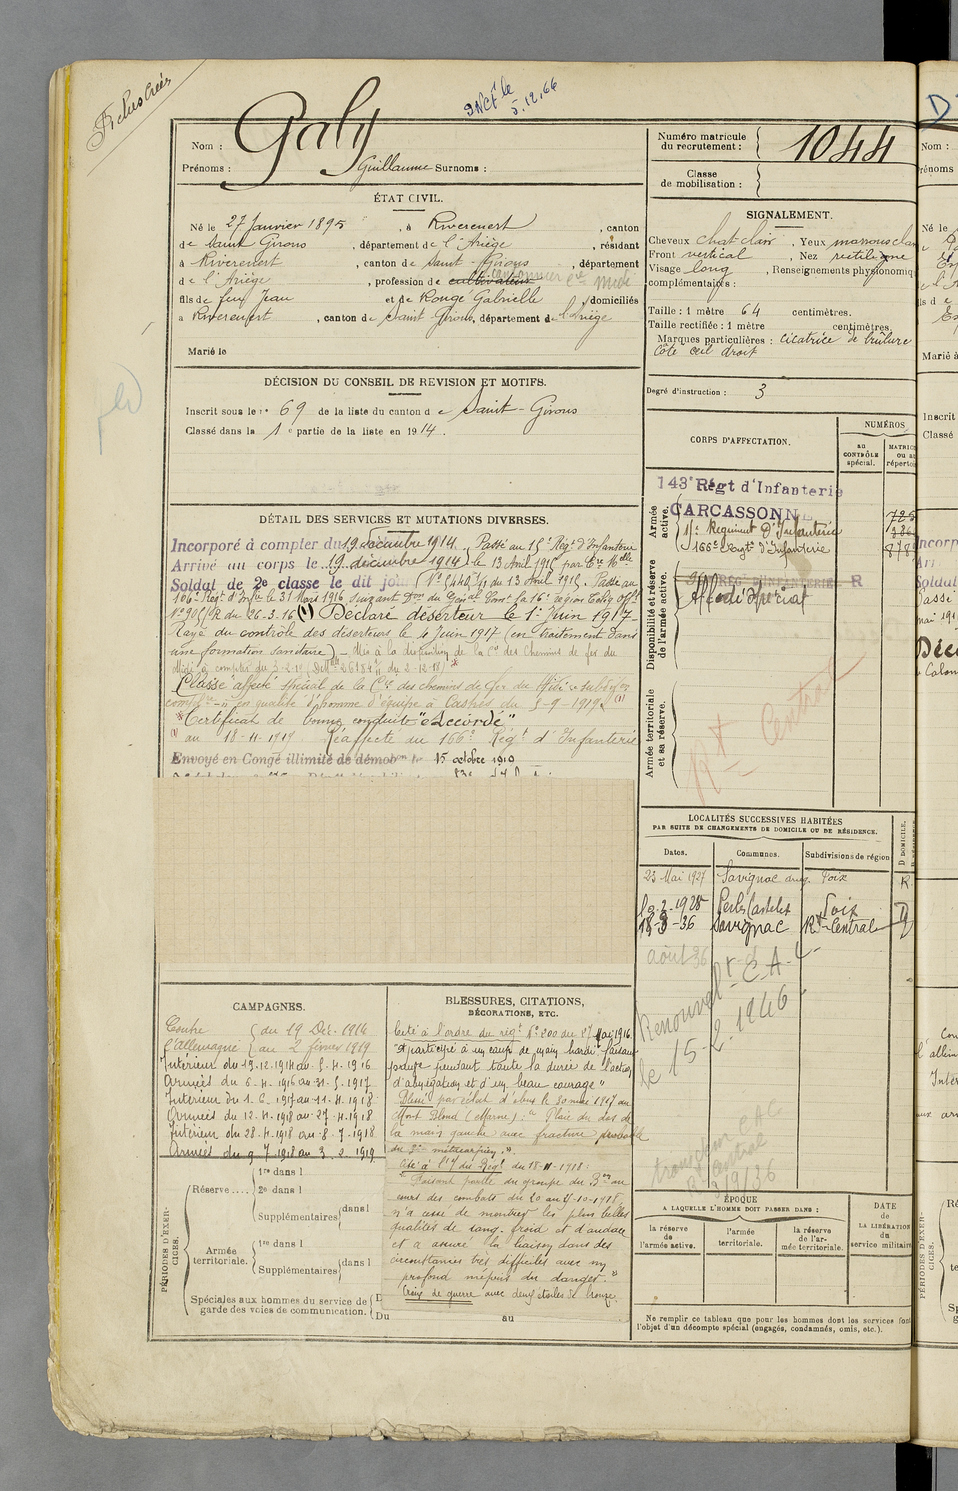 INCt le
5.12.66
Nom : Galy
Prénoms : Guillaume Surnoms :
Numéro matricule
du recrutement : 1044
Classe
de mobilisation :
ÉTAT CIVIL.
Né le 27 Janvier 1895, à Riverenert, canton
de Saint Girons, département de l'Ariège, résidant
à Riverenert, canton de Saint-Girons, département
de l'Ariège, profession de cultivateur cantonnier Cie Midi
fils de feu Jean et de Rouge Gabrielle, domiciliés
à Riverenert, canton de Saint Girons, département de l'Ariège
Marié le
SIGNALEMENT.
Cheveux chat clair, Yeux marrons clair
Front vertical, Nez rectiligne
Visage long, Renseignements physionomiq
complémentaires :
Taille : 1 mètre 64 centimètres.
Taille rectifiée : 1 mètre centimètres.
Marques particulières : cicatrice de brûlure
côté œil droit
Degré d'instruction : 3
DÉCISION DU CONSEIL DE REVISION ET MOTIFS.
Inscrit sous le no 69 de la liste du canton de Saint-Girons
Classé dans la 1e partie de la liste en 1914.
CORPS D'AFFECTATION.
NUMÉROS
au
CONTRÔLE
spécial.
MATRIC
ou au
répertoi
Armée
active.
143e Régt d'Infanterie
CARCASSONNE
15e Régiment D'Infanterie
166e Régt d'Infanterie
Disponibilité et réserve
de l'armée active.
RÉGT D'INFANTERIE R
Affecté Spécial
Armée territoriale
et sa réserve.
Rt Central
DÉTAIL DES SERVICES ET MUTATIONS DIVERSES.
Incorporé à compter du 19 décembre 1914. Passé au 15e Régt d'Infanterie
Arrivé au corps le 19 décembre 1914 le 13 Avril 1915 par
Soldat de 2e classe le dit jour du 13 Avril 1915. Passé au
106e Régt d'Infie le 31 Mars 1916 suivant Don du Gal Comt la 16e Région
No 905/R du 26-3-16 (1) Déclaré déserteur le 1er Juin 1917-
Rayé du contrôle des déserteurs le 4 Juin 1917 (en traitement dans
une formation sanitaire) - Mis à la disposition de la Cie des Chemins de fer du
Midi à compter du 3-2-19
Classé "affecté" spécial de la Cie des chemins de fer du Midi
en qualité d'homme d'équipe à du 3-9-1919 (1)
*Certificat de bonne conduite "Accordé"
(1) au 18-11-1917 Réaffecté au 166e Régt d'Infanterie
Envoyé en Congé illimité de démobon le 15 octobre 1919
LOCALITÉS SUCCESSIVES HABITÉES
PAR SUITE DE CHANGEMENTS DE DOMICILE OU DE RÉSIDENCE.
Dates. Communes. Subdivisions de région D DOMICILE.
23 Mai 1927 Savignac Foix R
10-2-1928 Perles Castelet Foix D
18-3-36 Savignac Rt-Central
août 36
Renouvelt C.A.
le 15-2-1946
CAMPAGNES.
Contre du 19 Déc. 1914
l'Allemagne au 2 février 1919
Intérieur du 19-12-1914 au 5-4-1916
Armées du 6-4-1916 au 31-5-1917
Intérieur du 1-6-1917 au 11-4-1918
Armées du 12-4-1918 au 27-4-1918
Intérieur du 28-4-1918 au 8-7-1918
Armées du 9-7-1918 au 3-2-1919
BLESSURES, CITATIONS,
DÉCORATIONS, ETC.
Cité à l'ordre du régt No 200 du 27 Mai 1916
"A participé à un coup de main hardi faisant
preuve pendant toute la durée de l'action
d'abnégation et d'un beau courage"
Blessé par éclat d'obus le 30 mai 1917 au
Mont Blond (Marne) : "Plaie du dos de
la main gauche avec fracture probable
du 3e métacarpien."
Cité à l'O du Régt du 18-11-1918 :
"Faisant partie du groupe du Bon au
cours des combats du 20 au 21-10-1918
n'a cessé de montrer les plus belles
qualités de sang-froid et d'audace
et a assuré la liaison dans des
circonstances très difficiles avec un
profond mépris du danger"
Croix de guerre avec deux étoiles de bronze
PÉRIODES D'EXER-
CICES.
Réserve....
1re dans l
2e dans l
Supplémentaires dans l
Armée
territoriale.
1re dans l
Supplémentaires dans l
Spéciales aux hommes du service de
garde des voies de communication.
Du au
ÉPOQUE
A LAQUELLE L'HOMME DOIT PASSER DANS :
la réserve
de l'armée active.
l'armée
territoriale.
la réserve
de l'ar-
mée territoriale.
DATE
de
LA LIBÉRATION
du
service militaire
Ne remplir ce tableau que pour les hommes dont les services font
l'objet d'un décompte spécial (engagés, condamnés, omis, etc.).